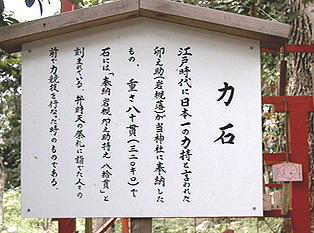 力石
江戸時代に日本一の力持と言われた
卯之助(岩槻藩)が当神社に奉納した
もの。重さ八十貫(三二〇キロ)で
石には「奉納岩槻卯之助持之八拾貫」と
刻まれている。弁財天の祭礼に諸でた人々の
前で力競技を行なった時のものである。